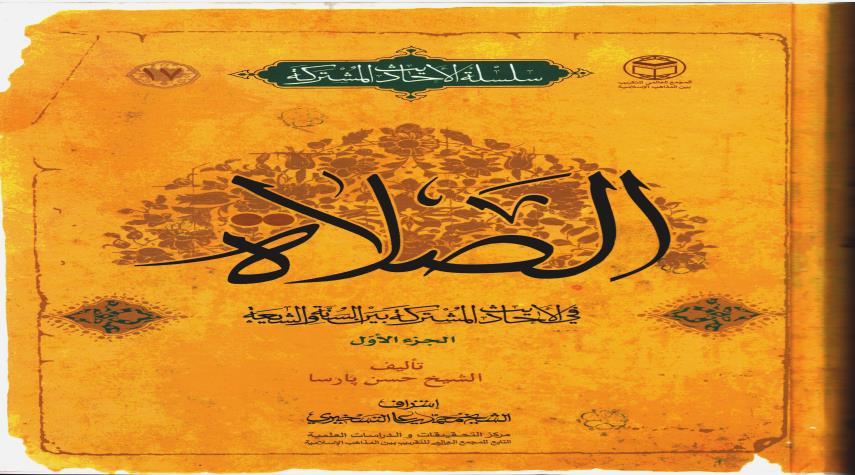 المجمع العالمي للتقريب
بين المذاهب الإسلامية
سلسلة الأحاديث المشتركة
١٧
الصلاة
في الأحاديث المشتركة بين السنة والشيعة
الجزء الأول
تأليف
الشيخ حسن پارسا
إشراف
الشيخ محمد علي التسخيري
مركز التحقيقات و الدراسات العلمية
التابع للمجمع العالمي للتقريب بين المذاهب الإسلامية